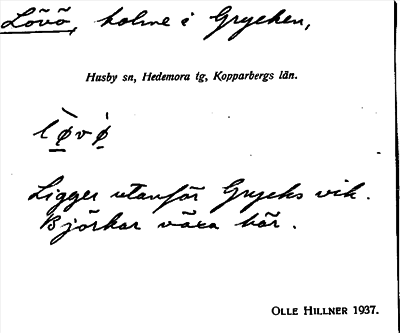 Lövö, holme i Grycken,
Husby sn, Hedemora tg, Kopparbergs län.
lø̠̀vø̠̀
Ligger utanför Grycks vik.
Björkar växa här.
OLLE HILLNER 1937.